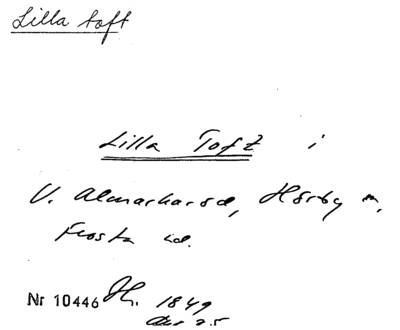 Lilla toft
Lilla Toft i
V. Almarharad, Hörby n,
Frosta hd.
Nr 10446 Th. 1849
Dec 25